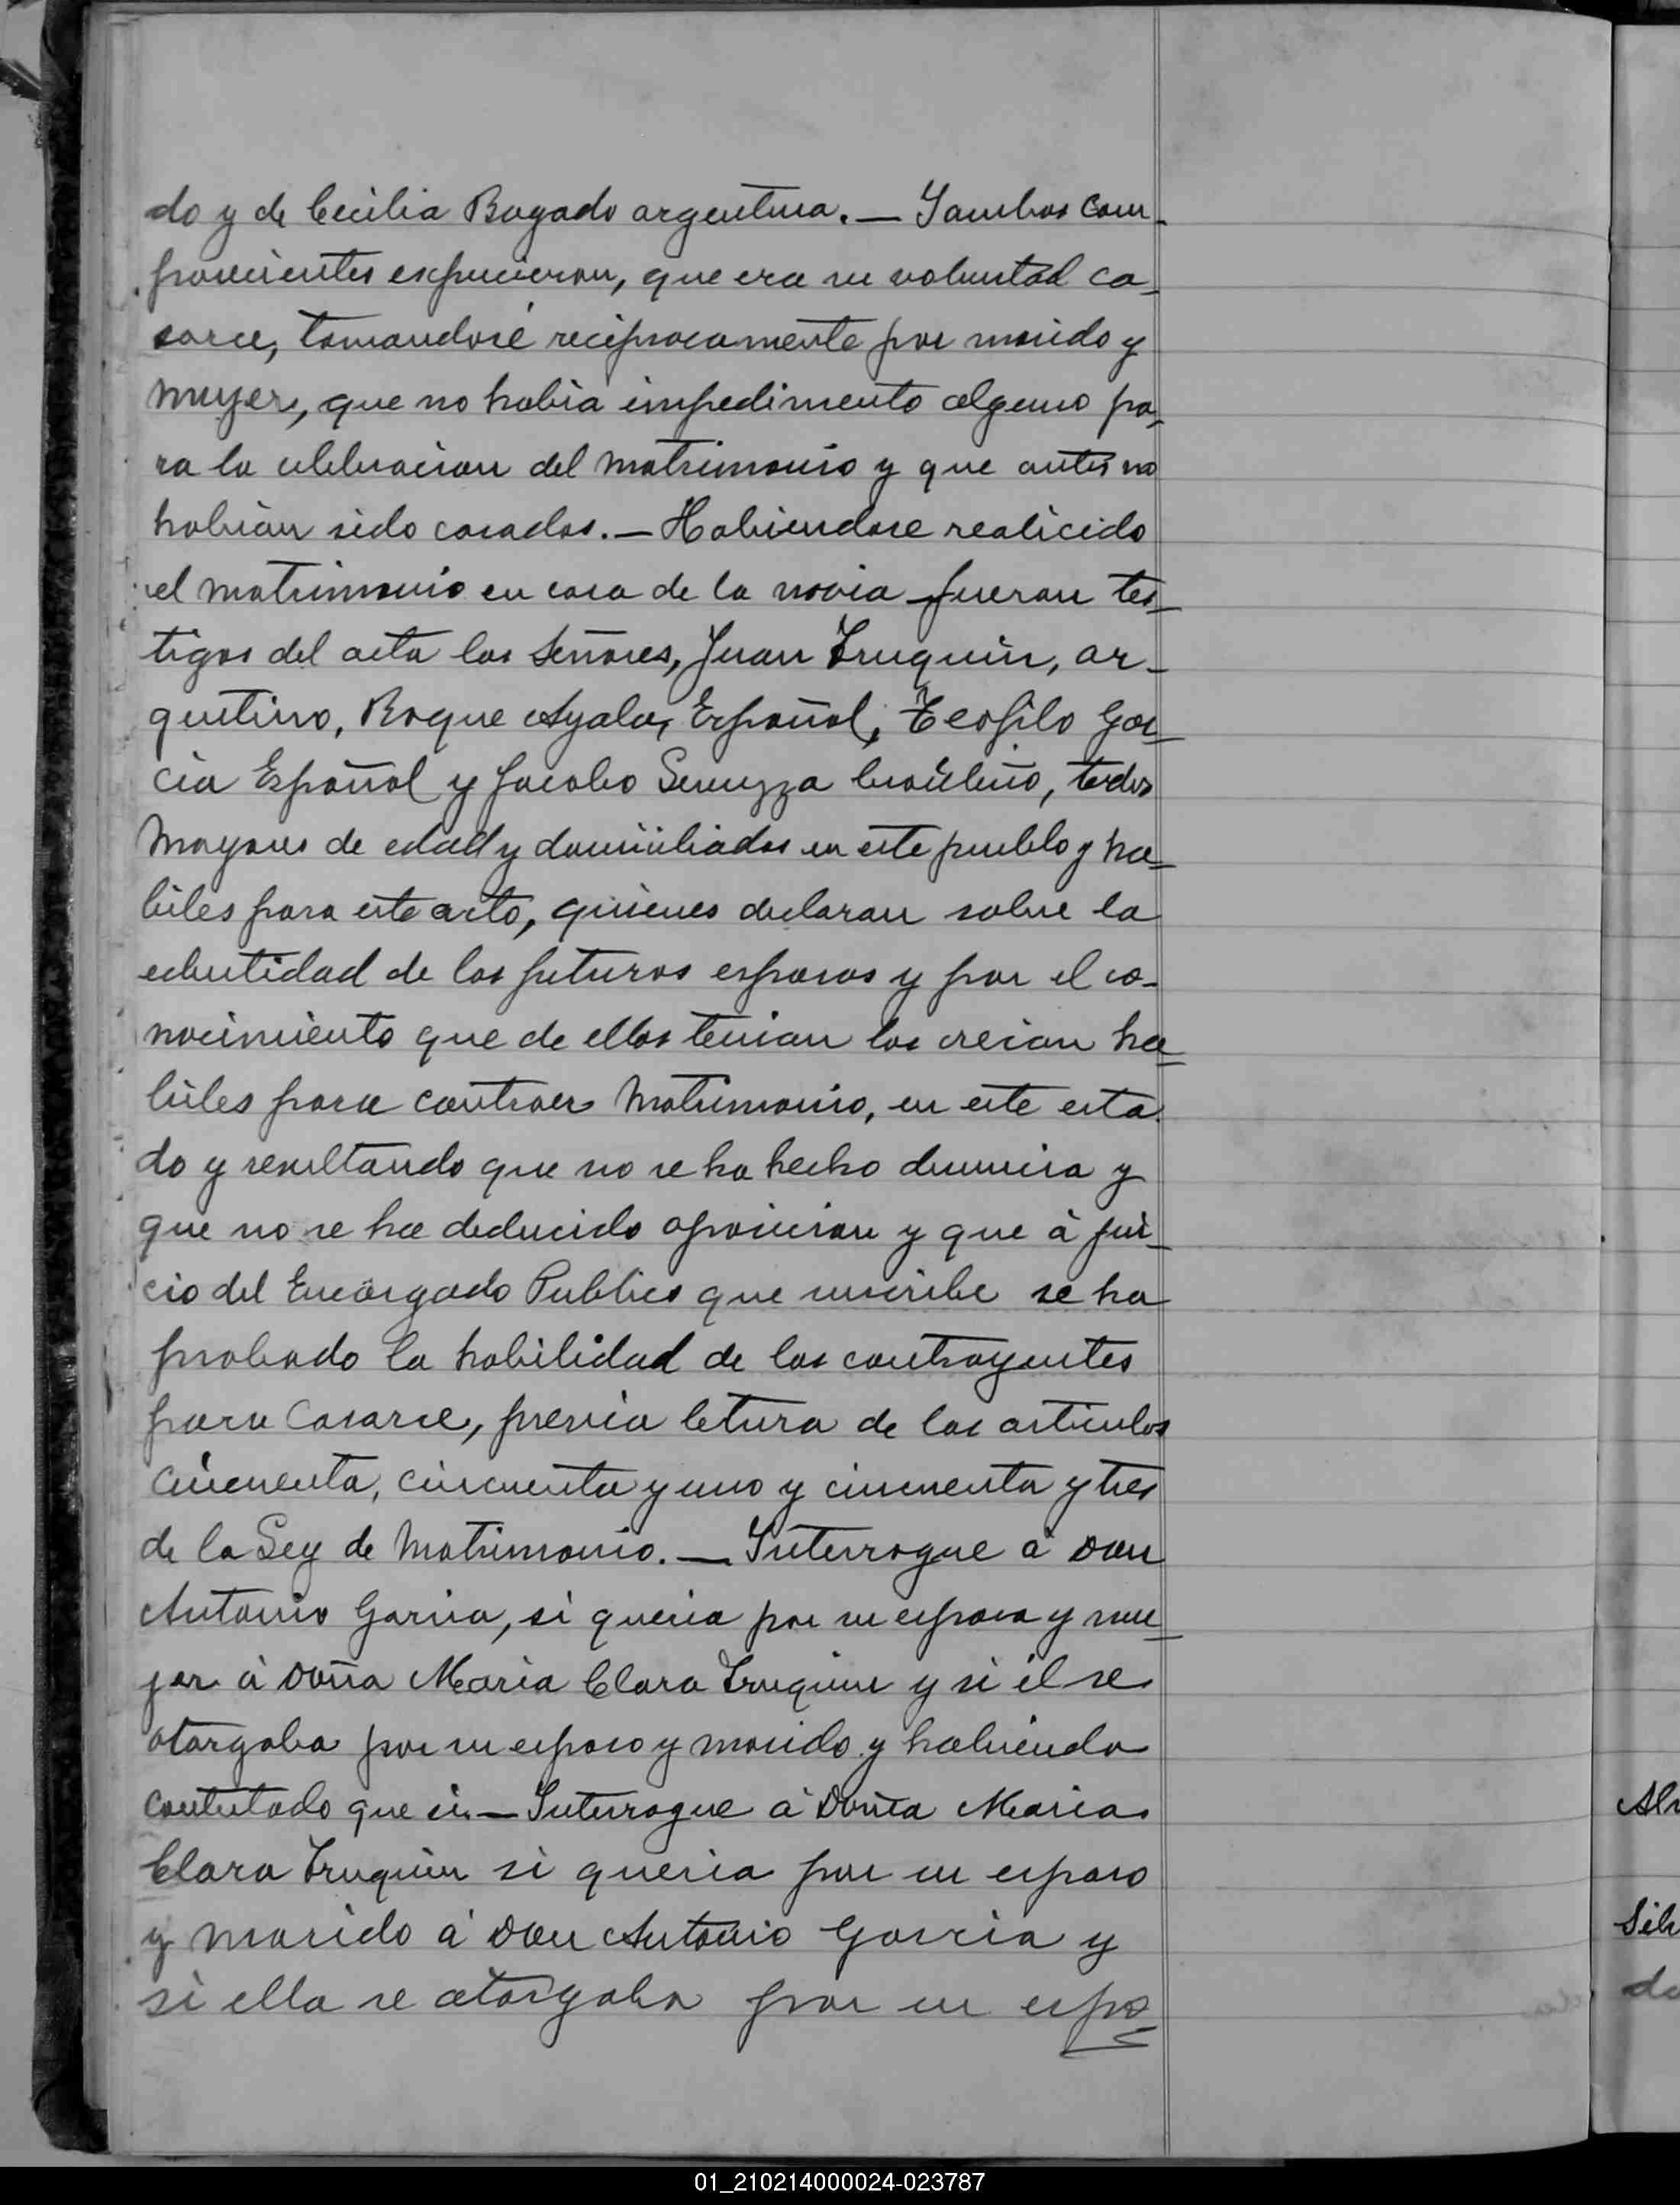 do y de Cecilia Bogado argentina. — Y ambos com-
parecientes expucieron, que era su voluntad ca-
sarce, tomandosé reciprocamente por marido y
muyer, que no habia impedimento alguno pa-
ra la celebracion del matrimonio y que antes no
habian sido casados. — Habiendose realicido
el matrimonio en casa de la novia fueron tes-
tigos del acta los Señores, Juan Truquin, ar-
gentino, Roque Ayala, Español, Teofilo Gar-
cia Español y Jacobo brasileño, todos
Mayores de edad y domiciliados en este pueblo y ha-
biles para este acto, quienes declaran sobre la
edentidad de los futuros esposos y por el co-
nocimiento que de ellos tenian los creian ha-
biles para contraer Matrimonio, en este esta
do y resultando que no se ha hecho denuncia y
que no se ha deducido oposicion y que à jui-
cio del Encargado Publico que suscribe se ha
probado la habilidad de los contrayentes
para Casarce, previa letura de los articulos
Cincuenta, cincuenta y uno y cincuenta y tres
de la Ley de Matrimonio. — Interrogue a Don
Antonio Garcia, si queria por su esposa y mu-
jer à Doña Maria Clara Truquin y si él se
otorgaba por su esposo y marido y habiendo
contestado que si. — Interrogue a Doña Maria
Clara Truquin si queria por su esposo
y marido a Don Antonio Garcia y
si ella se otorgaba por su espo-
Sil
do
01_210214000024-023787